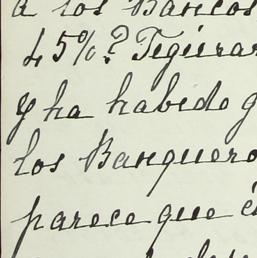 a los Bancos
45%? Figúra
y ha habido q
los Banquero
parece que é